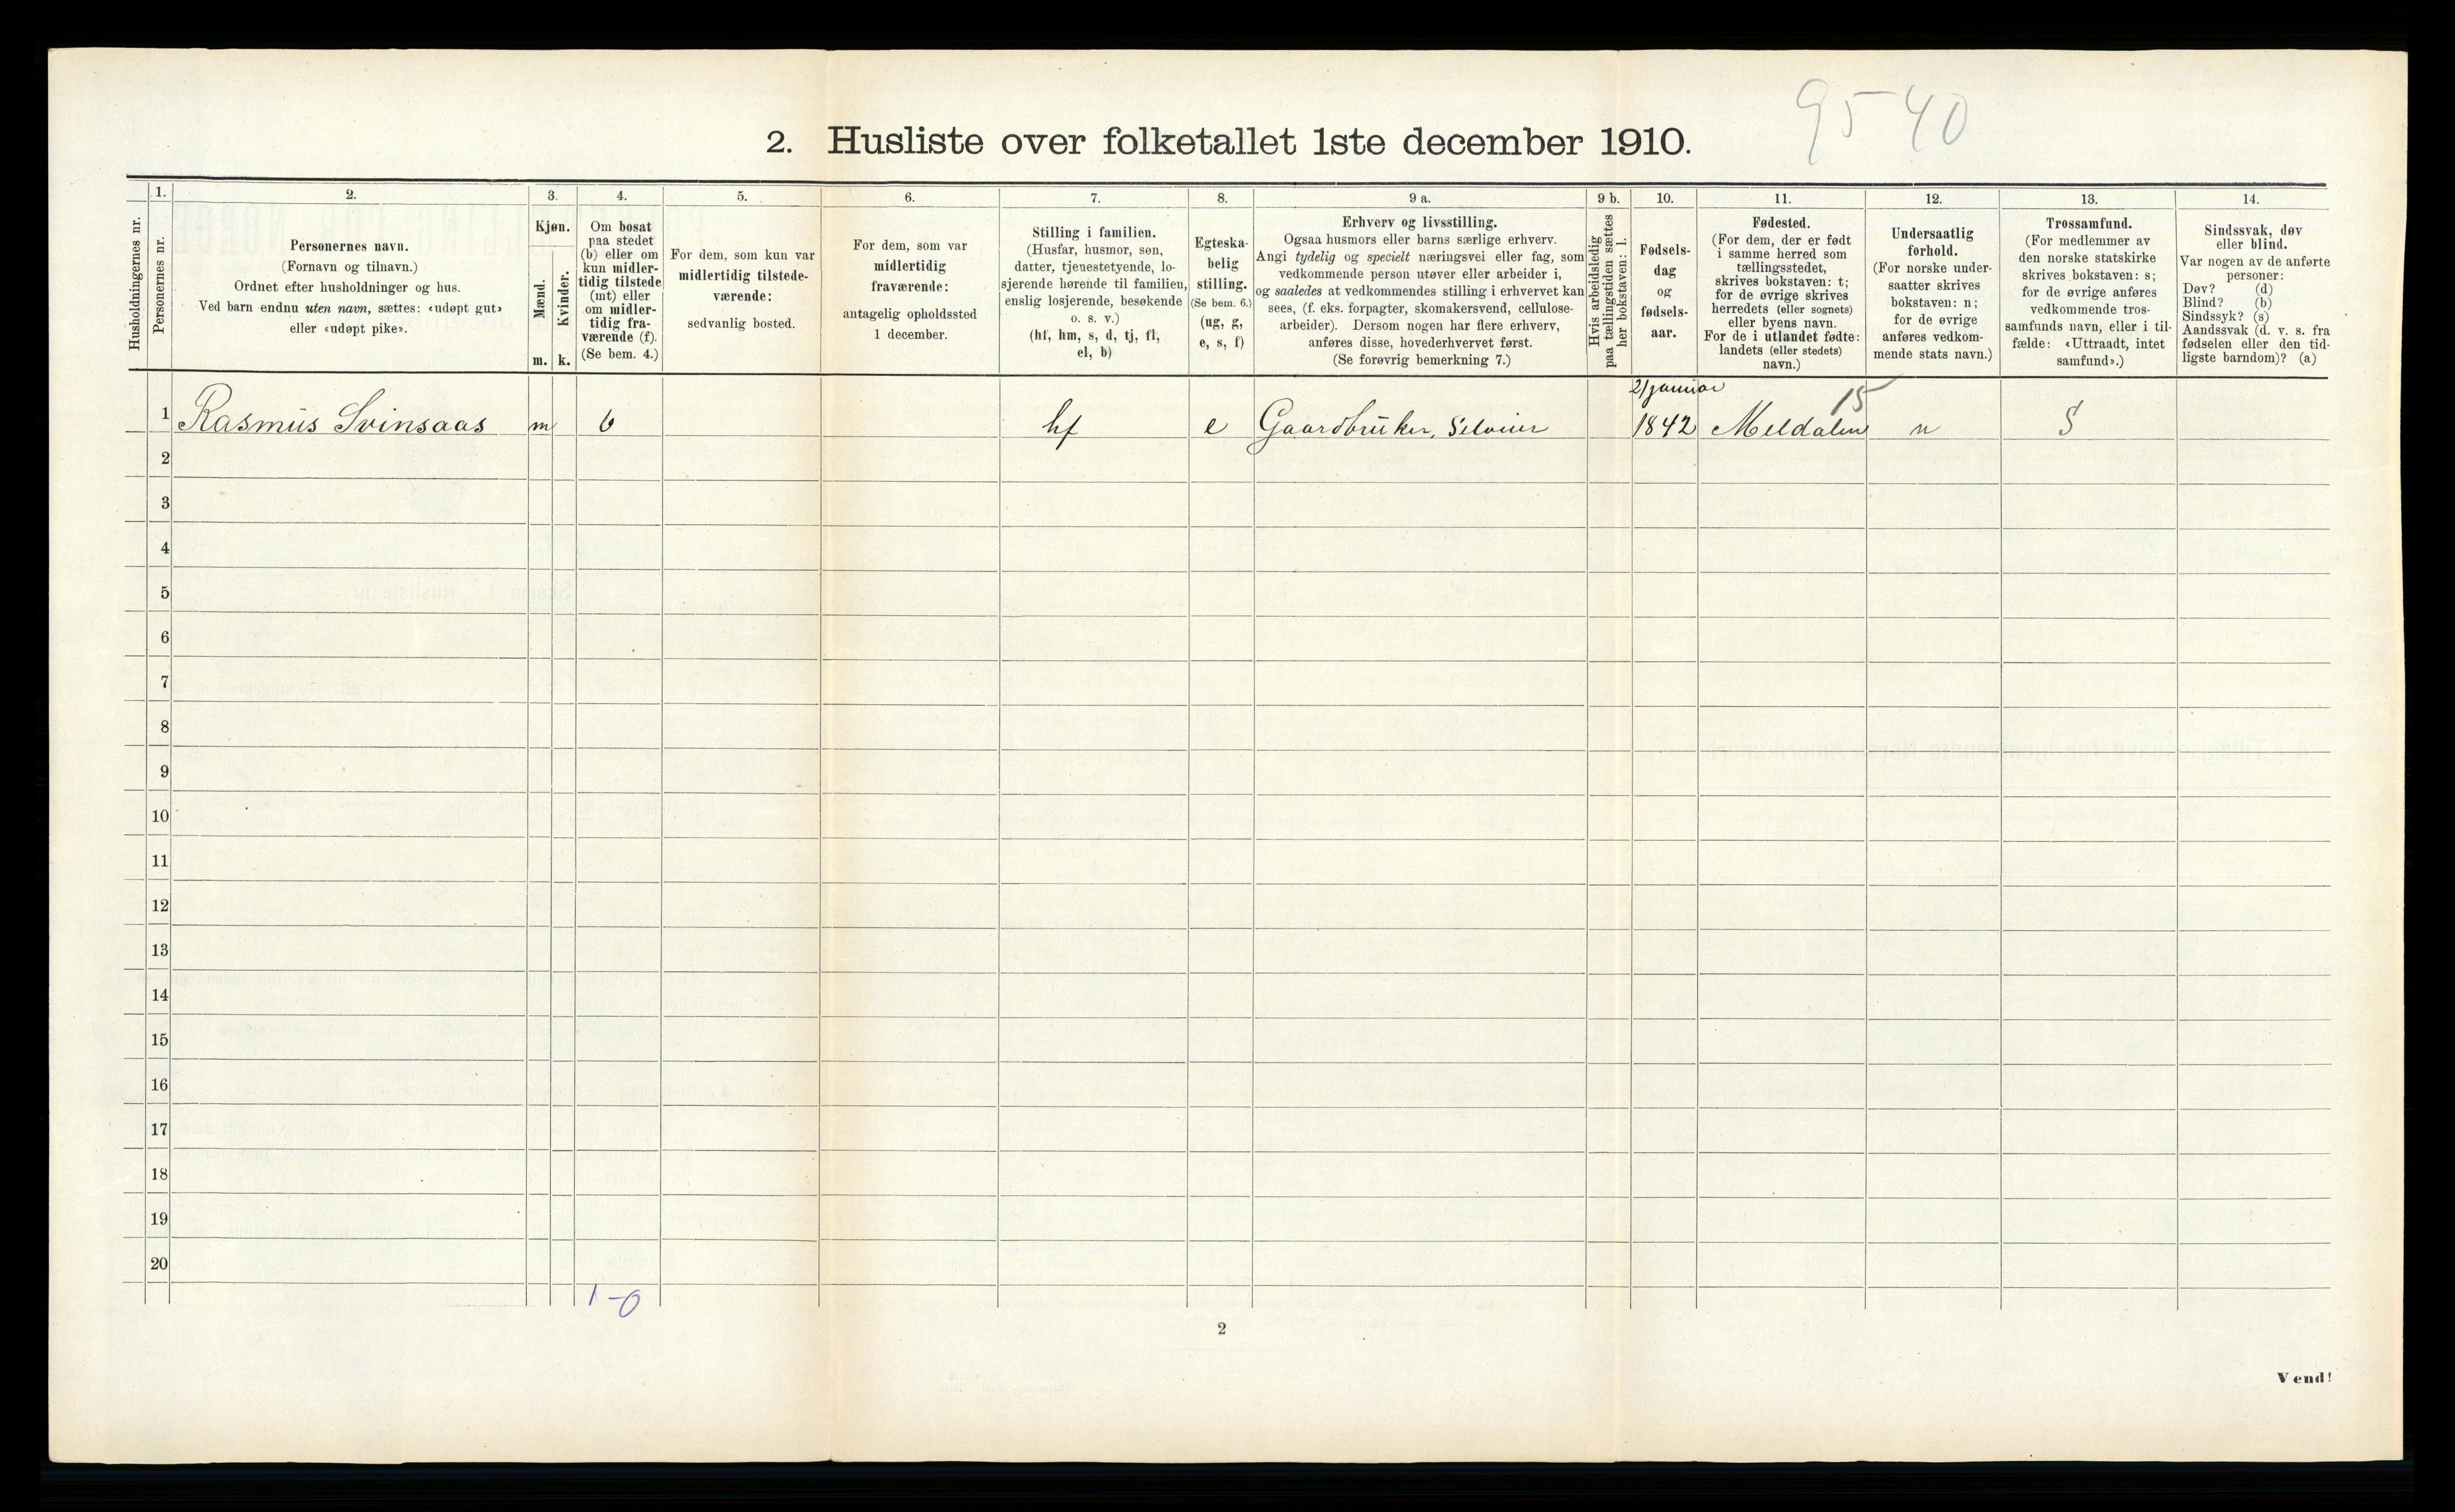 9540
2. Husliste over folketallet 1ste december 1910.
Husholdningernes nr.
1.
Personernes nr.
2.
Personernes navn.
(Fornavn og tilnavn.)
Ordnet efter husholdninger og hus.
Ved barn endnu uten navn, sættes: «udøpt gut»
eller «udøpt pike».
3.
Kjøn.
Mænd.
m.
Kvinder.
k.
4.
Om bosat
paa stedet
(b) eller om
kun midler-
tidig tilstede
(mt) eller
om midler-
tidig fra-
værende (f).
(Se bem. 4.)
5.
For dem, som kun var
midlertidig tilstede-
værende:
sedvanlig bosted.
6.
For dem, som var
midlertidig
fraværende:
antagelig opholdssted
1 december.
7.
Stilling i familien.
(Husfar, husmor, søn,
datter, tjenestetyende, lo-
sjerende hørende til familien,
enslig losjerende, besøkende
o. s. v.)
(hf, hm, s, d, tj, fl,
el, b)
8.
Egteska-
belig
stilling.
(Se bem. 6.)
(ug, g,
e, s, f)
9 a.
Erhverv og livsstilling.
Ogsaa husmors eller barns særlige erhverv.
Angi tydelig og specielt næringsvei eller fag, som
vedkommende person utøver eller arbeider i,
og saaledes at vedkommendes stilling i erhvervet kan
sees, (f. eks. forpagter, skomakersvend, cellulose-
arbeider). Dersom nogen har flere erhverv,
anføres disse, hovederhvervet først.
(Se forøvrig bemerkning 7.)
9 b.
Hvis arbeidsledig
paa tællingstiden sættes
her bokstaven: l.
10.
Fødsels-
dag
og
fødsels-
aar.
11.
Fødested.
(For dem, der er født
i samme herred som
tællingsstedet,
skrives bokstaven: t;
for de øvrige skrives
herredets (eller sognets)
eller byens navn.
For de i utlandet fødte:
landets (eller stedets)
navn.)
12.
Undersaatlig
forhold.
(For norske under-
saatter skrives
bokstaven: n;
for de øvrige
anføres vedkom-
mende stats navn.)
13.
Trossamfund.
(For medlemmer av
den norske statskirke
skrives bokstaven: s;
for de øvrige anføres
vedkommende tros-
samfunds navn, eller i til-
fælde: «Uttraadt, intet
samfund».)
14.
Sindssvak, døv
eller blind.
Var nogen av de anførte
personer:
Døv? (d)
Blind? (b)
Sindssyk? (s)
Aandssvak (d. v. s. fra
fødselen eller den tid-
ligste barndom)? (a)
2/januar 15
1 Rasmus Svinsaas m b hf e Gaardbruker, Selveier 1842 Meldalen n S
2
3
4
5
6
7
8
9
10
11
12
13
14
15
16
17
18
19
20
1-0
2
Vend!